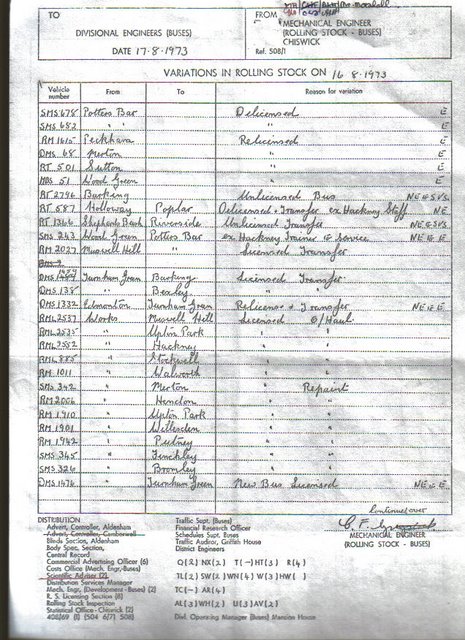 TO
DIVISIONAL ENGINEERS (BUSES)
DATE 17·8·1973
FROM
MECHANICAL ENGINEER
(ROLLING STOCK - BUSES)
CHISWICK
Ref. 508/1
VARIATIONS IN ROLLING STOCK ON 16·8·1973
Vehicle number From To Reason for variation
SMS 678 Potters Bar Delicensed E
SMS 682 " " E
RM 1615 Peckham Relicensed E
DMS 68 Merton " E
RT 501 Sutton " E
51 Wood Green " E
RT 2796 Barking Unlicensed Bus NE & SVS
RT 587 Holloway Poplar Delicensed & Transfer ex Hackney Staff NE
RT 1366 Shepherds Bush Riverside Unlicensed Transfer NE & SVS
SMS 243 Wood Green Potters Bar ex Hackney Trainer to Service NE & E
RM 2027 Muswell Hill " Licensed Transfer
DMS Turnham Green Barking Licensed Transfer
DMS 138 " Bexley " "
DMS 1332 Edmonton Turnham Green Relicense & Transfer NE & E
RML 2537 Works Muswell Hill Licensed O/Haul
RML 2535 " Upton Park "
RML 2582 " Hackney "
RML 885 " Stockwell "
RM 1011 " Walworth "
SMS 342 " Merton " Repaint
RM 2006 " Hendon "
RM 1710 " Upton Park "
RM 1901 " Willesden "
RM 1942 " Putney "
SMS 345 " Finchley "
SMS 326 " Bromley "
DMS 1476 Turnham Green New Bus Licensed NE & E
Continued over
MECHANICAL ENGINEER
(ROLLING STOCK - BUSES)
DISTRIBUTION
Advert. Controller, Aldenham
Advert. Controller, Camberwell
Blinds Section, Aldenham
Body Spec. Section,
Central Record
Commercial Advertising Officer (6)
Costs Office (Mech. Engr.-Buses)
Scientific Adviser (2)
Distribution Services Manager
Mech. Engr. (Development - Buses) (2)
R. S. Licensing Section (6)
Rolling Stock Inspection
Statistical Office - Chiswick (2)
408/69 (1) (504 6/7) 508)
Traffic Supt. (Buses)
Financial Research Officer
Schedules Supt. Buses
Traffic Auditor, Griffith House
District Engineers
Q(2) NX(2) T(-) HT(3) R(4)
TL(2) SW(2) WN(4) W(3) HW( )
TC(-) AR(4)
AL(3) WH(2) U(3) AV(2)
Divl. Operating Manager (Buses) Mansion House